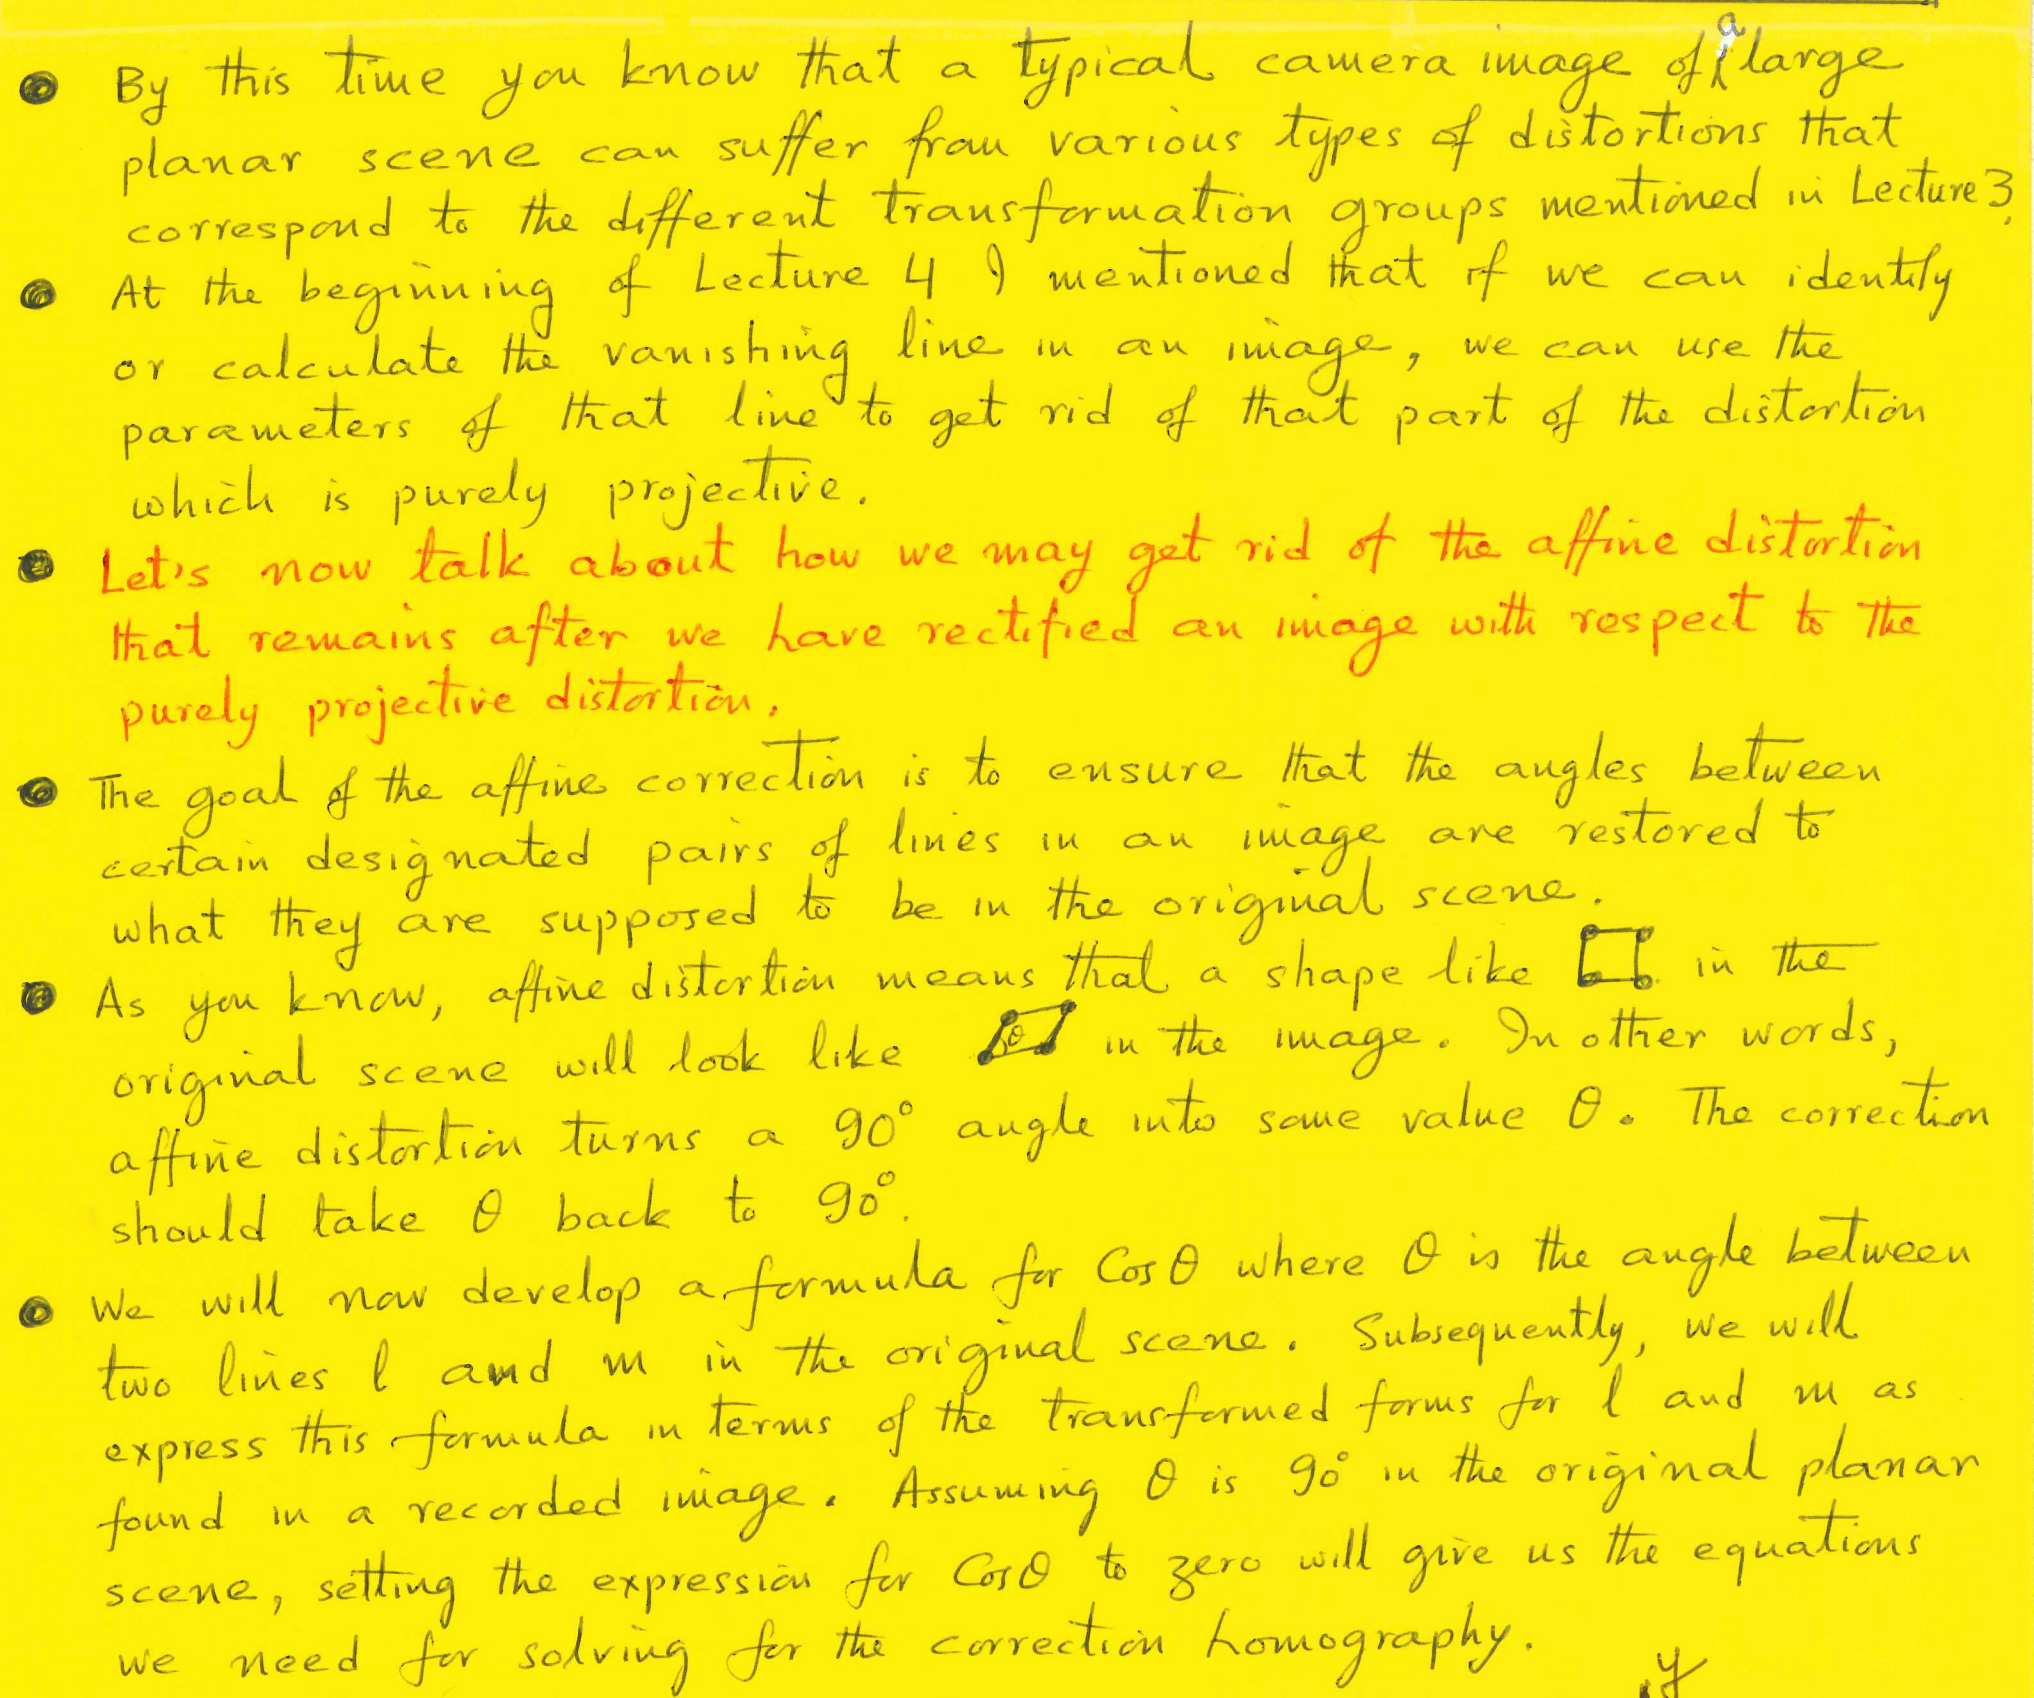 • By this time you know that a typical camera image of a large
planar scene can suffer from various types of distortions that
correspond to the different transformation groups mentioned in Lecture 3.
• At the beginning of Lecture 4 I mentioned that if we can identify
or calculate the vanishing line in an image, we can use the
parameters of that line to get rid of that part of the distortion
which is purely projective.
• Let's now talk about how we may get rid of the affine distortion
that remains after we have rectified an image with respect to the
purely projective distortion.
• The goal of the affine correction is to ensure that the angles between
certain designated pairs of lines in an image are restored to
what they are supposed to be in the original scene.
• As you know, affine distortion means that a shape like in the
original scene will look like θ in the image. In other words,
affine distortion turns a 90° angle into some value θ. The correction
should take θ back to 90°.
• We will now develop a formula for Cos θ where θ is the angle between
two lines l and m in the original scene. Subsequently, we will
express this formula in terms of the transformed forms for l and m as
found in a recorded image. Assuming θ is 90° in the original planar
scene, setting the expression for Cos θ to zero will give us the equations
we need for solving for the correction homography.
y